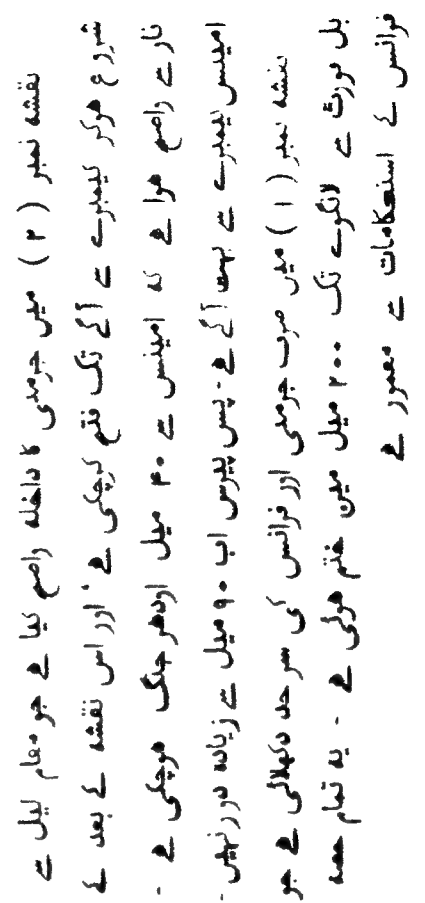 نقشه نمبر ( ۲ ) میں جرمنی کا داخله واضح کیا ہے جو مقام لیل سے
شروع هوکر کیمبرے سے آگے تک فتح کرچکی ہے ' اور اس نقشه کے بعد کے
تار سے واضح هوا ہے که امینس سے ۴۰ میل اودهر جنگ هوچکی ہے -
امینس کیمبرے سے بہت آگے ہے - پس پیرس اب ۹۰ میل سے زیاده دور نہیں -
نقشه نمبر ( ۱ ) میں صرف جرمنی اور فرانس کی سرحد دکهلائی ہے جو
بل فورٹ سے لانگوے تک ۲۰۰ میل میں ختم هوئی ہے - یه تمام حصه
فرانس کے استحکامات سے معمور ہے